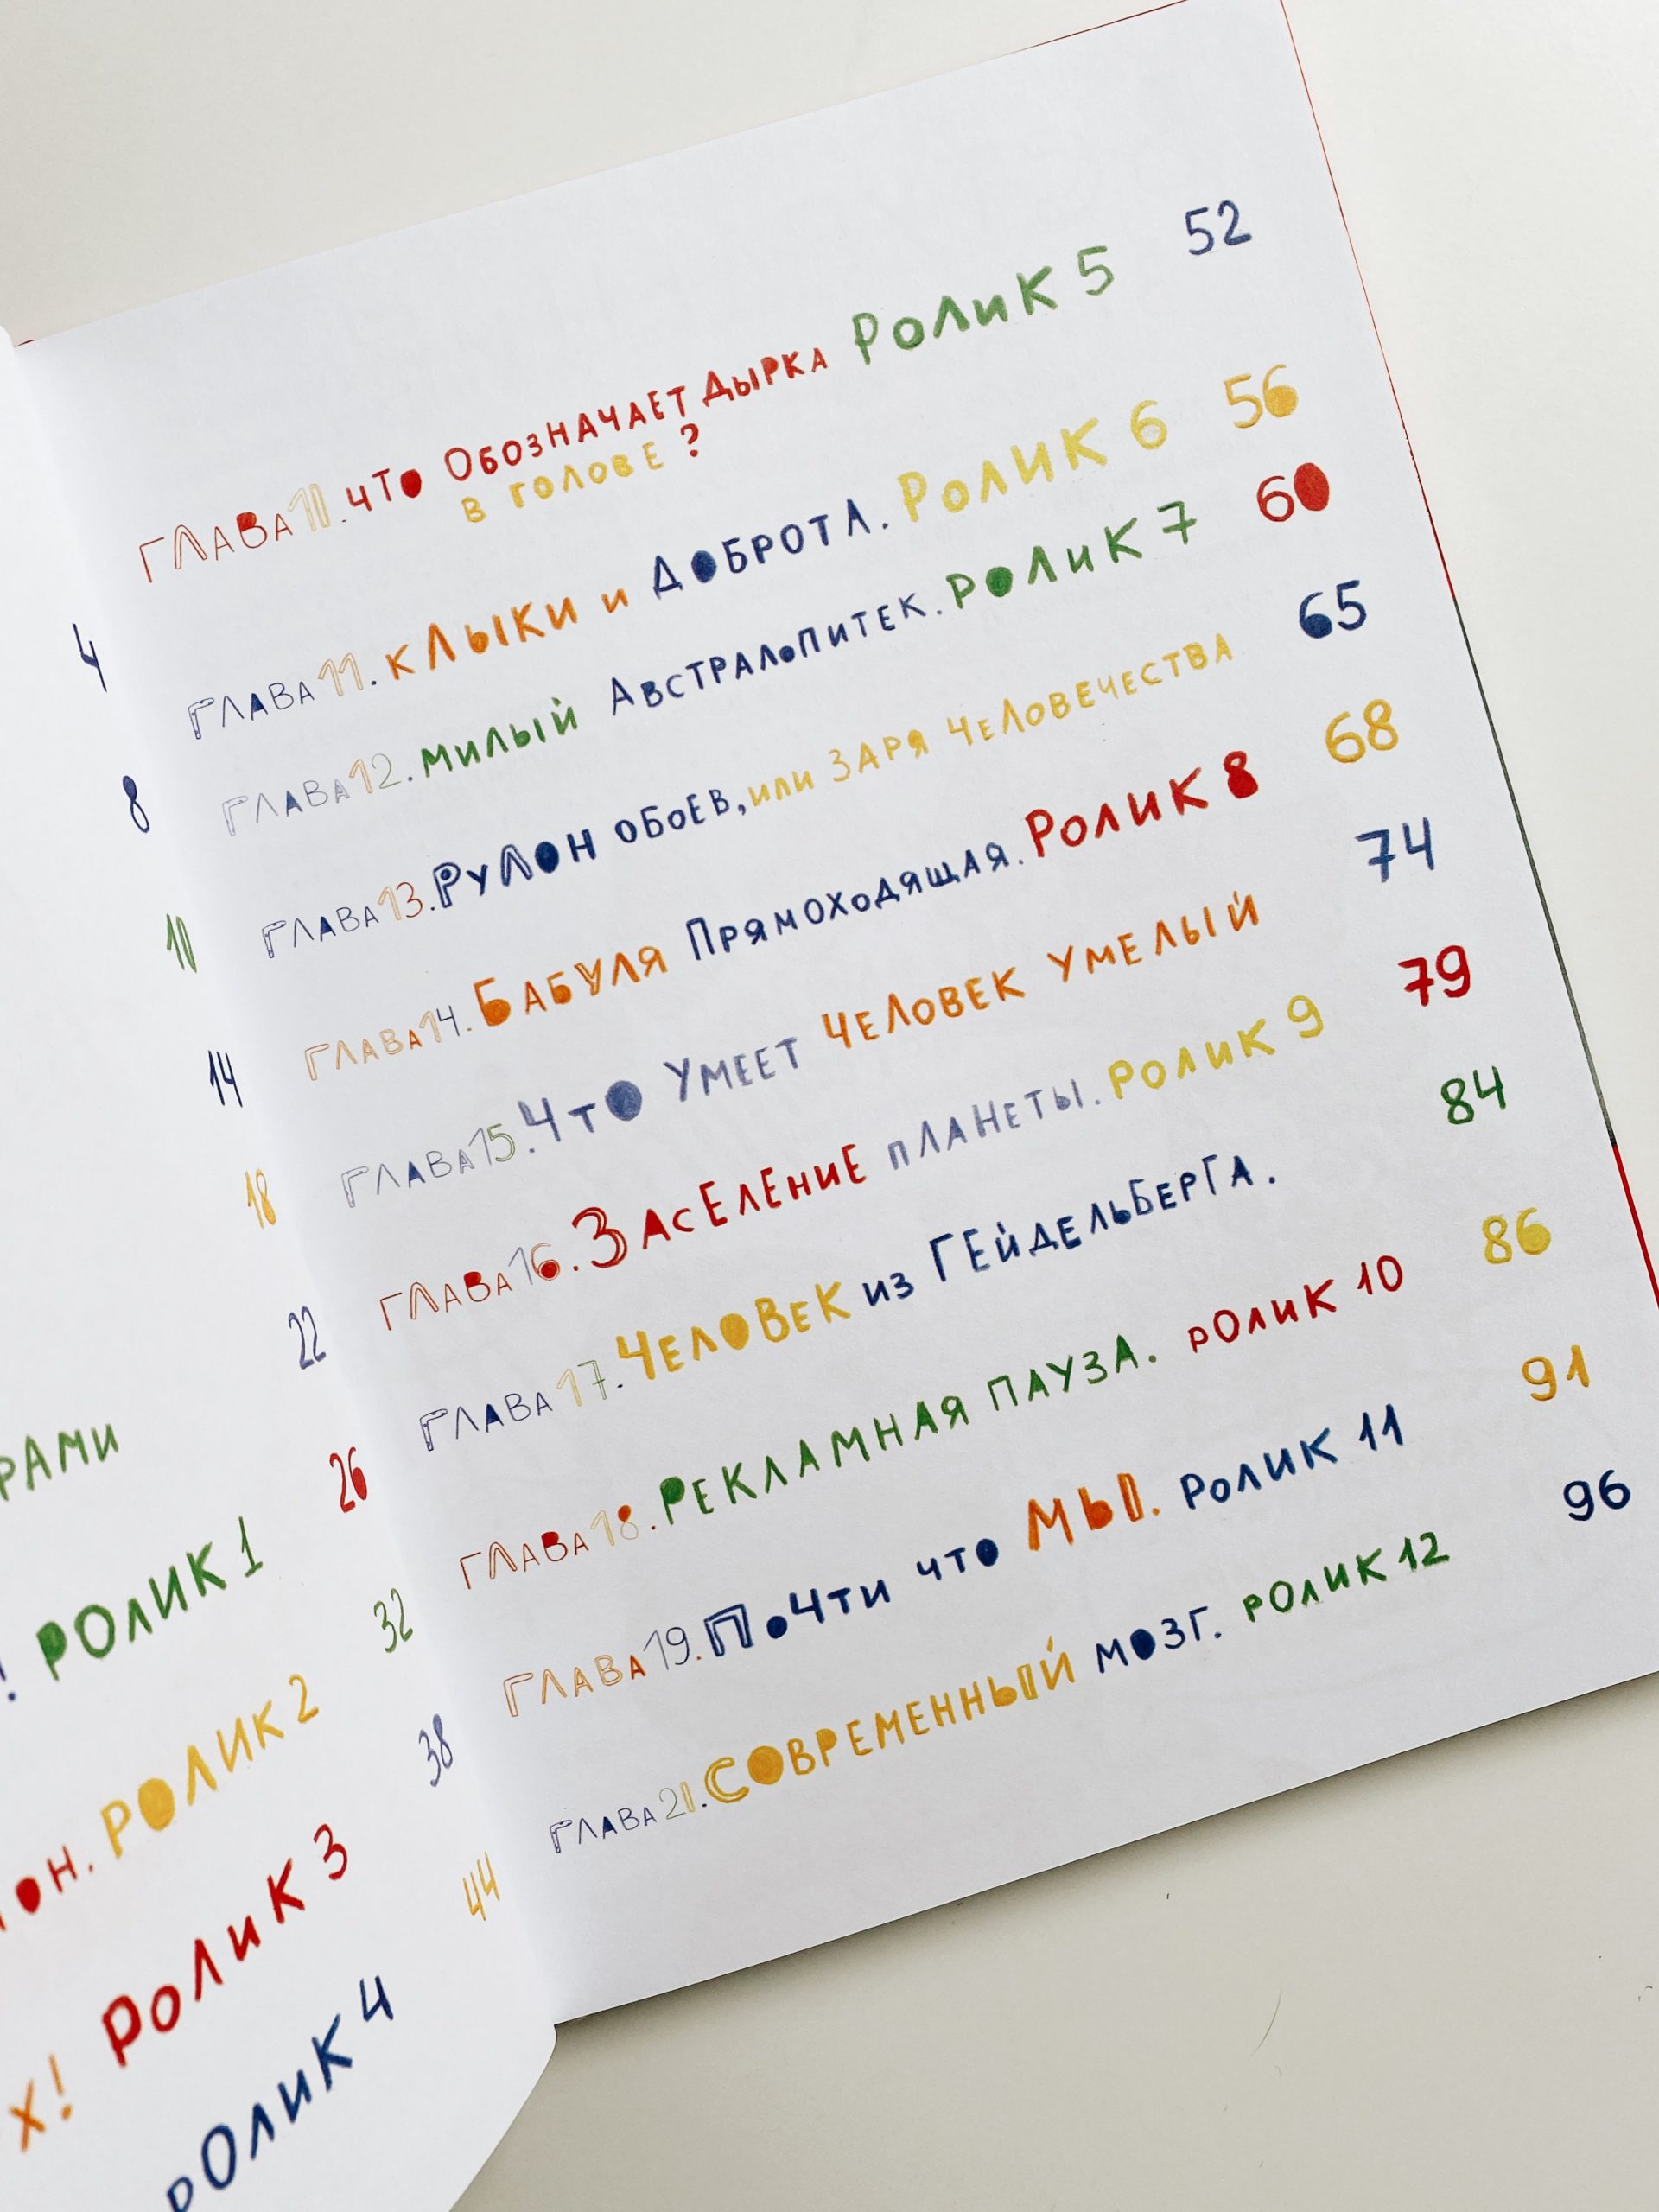 4
8
10
14
18
22
РАМИ 26
! РОЛИК 1 32
ОН. РОЛИК 2 38
Х! РОЛИК 3 44
РОЛИК 4
ГЛАВА 10. ЧТО ОБОЗНАЧАЕТ ДЫРКА РОЛИК 5 52
В ГОЛОВЕ?
ГЛАВА 11. КЛЫКИ И ДОБРОТА. РОЛИК 6 56
ГЛАВА 12. МИЛЫЙ АВСТРАЛОПИТЕК. РОЛИК 7 60
ГЛАВА 13. РУЛОН ОБОЕВ, ИЛИ ЗАРЯ ЧЕЛОВЕЧЕСТВА 65
ГЛАВА 14. БАБУЛЯ ПРЯМОХОДЯЩАЯ. РОЛИК 8 68
ГЛАВА 15. ЧТО УМЕЕТ ЧЕЛОВЕК УМЕЛЫЙ 74
ГЛАВА 16. ЗАСЕЛЕНИЕ ПЛАНЕТЫ. РОЛИК 9 79
ГЛАВА 17. ЧЕЛОВЕК ИЗ ГЕЙДЕЛЬБЕРГА. 84
ГЛАВА 18. РЕКЛАМНАЯ ПАУЗА. РОЛИК 10 86
ГЛАВА 19. ПОЧТИ ЧТО МЫ. РОЛИК 11 91
ГЛАВА 21. СОВРЕМЕННЫЙ МОЗГ. РОЛИК 12 96